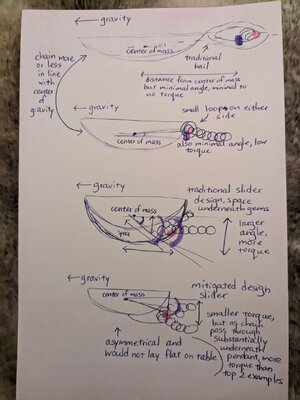 ← gravity
center of mass
traditional
bail
chain more
or less
in line
with
center of
gravity
distance from center of mass
but minimal angle, minimal to
no torque
← gravity
small loops on either
side
center of mass
also minimal angle, low
torque
← gravity
traditional slider
design, space
underneath gems
center of mass
space
larger
angle,
more
torque
← gravity
mitigated design
slider
center of mass
smaller torque,
but as chain
pass through
substantially
underneath
pendant, more
torque than
top 2 examples
asymmetrical and
would not lay flat on table